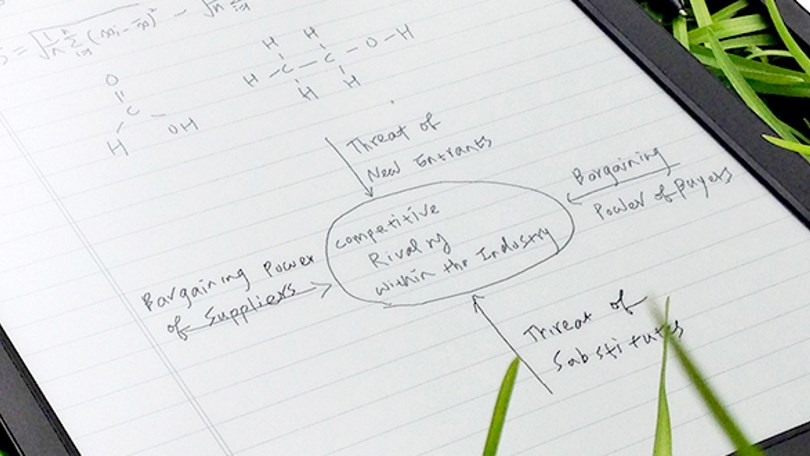 O
C
H OH
H H
H-C-C-O-H
H H
Threat of
New Entrants
Bargaining
Power of Buyers
competitive
Rivalry
within the Industry
Bargaining Power
of Suppliers
Threat of
Substitutes